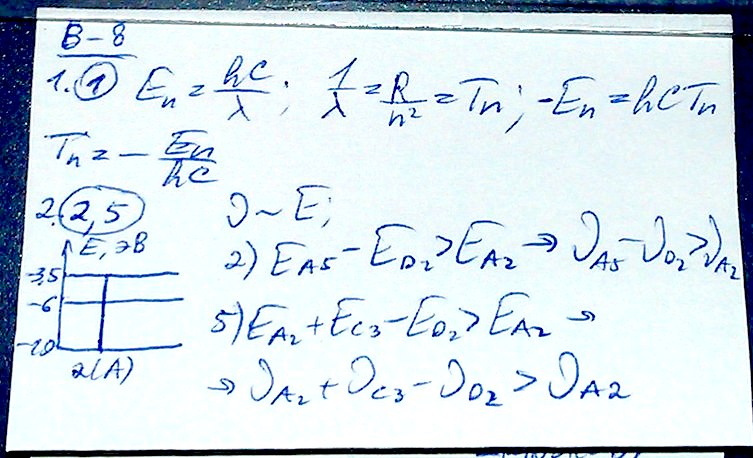 В-8
1. 1 Eₙ = hc/λ; 1/λ = R/n² = Tₙ; -Eₙ = hcTₙ
Tₙ = - Eₙ/hc
2. 2,5 ν ~ E;
E, эВ
2) E_A5 - E_D2 > E_A2 → ν_A5 - ν_D2 > ν_A2
-3,5
-6
5) E_A2 + E_C3 - E_D2 > E_A2 →
-10
2(A)
→ ν_A2 + ν_C3 - ν_D2 > ν_A2